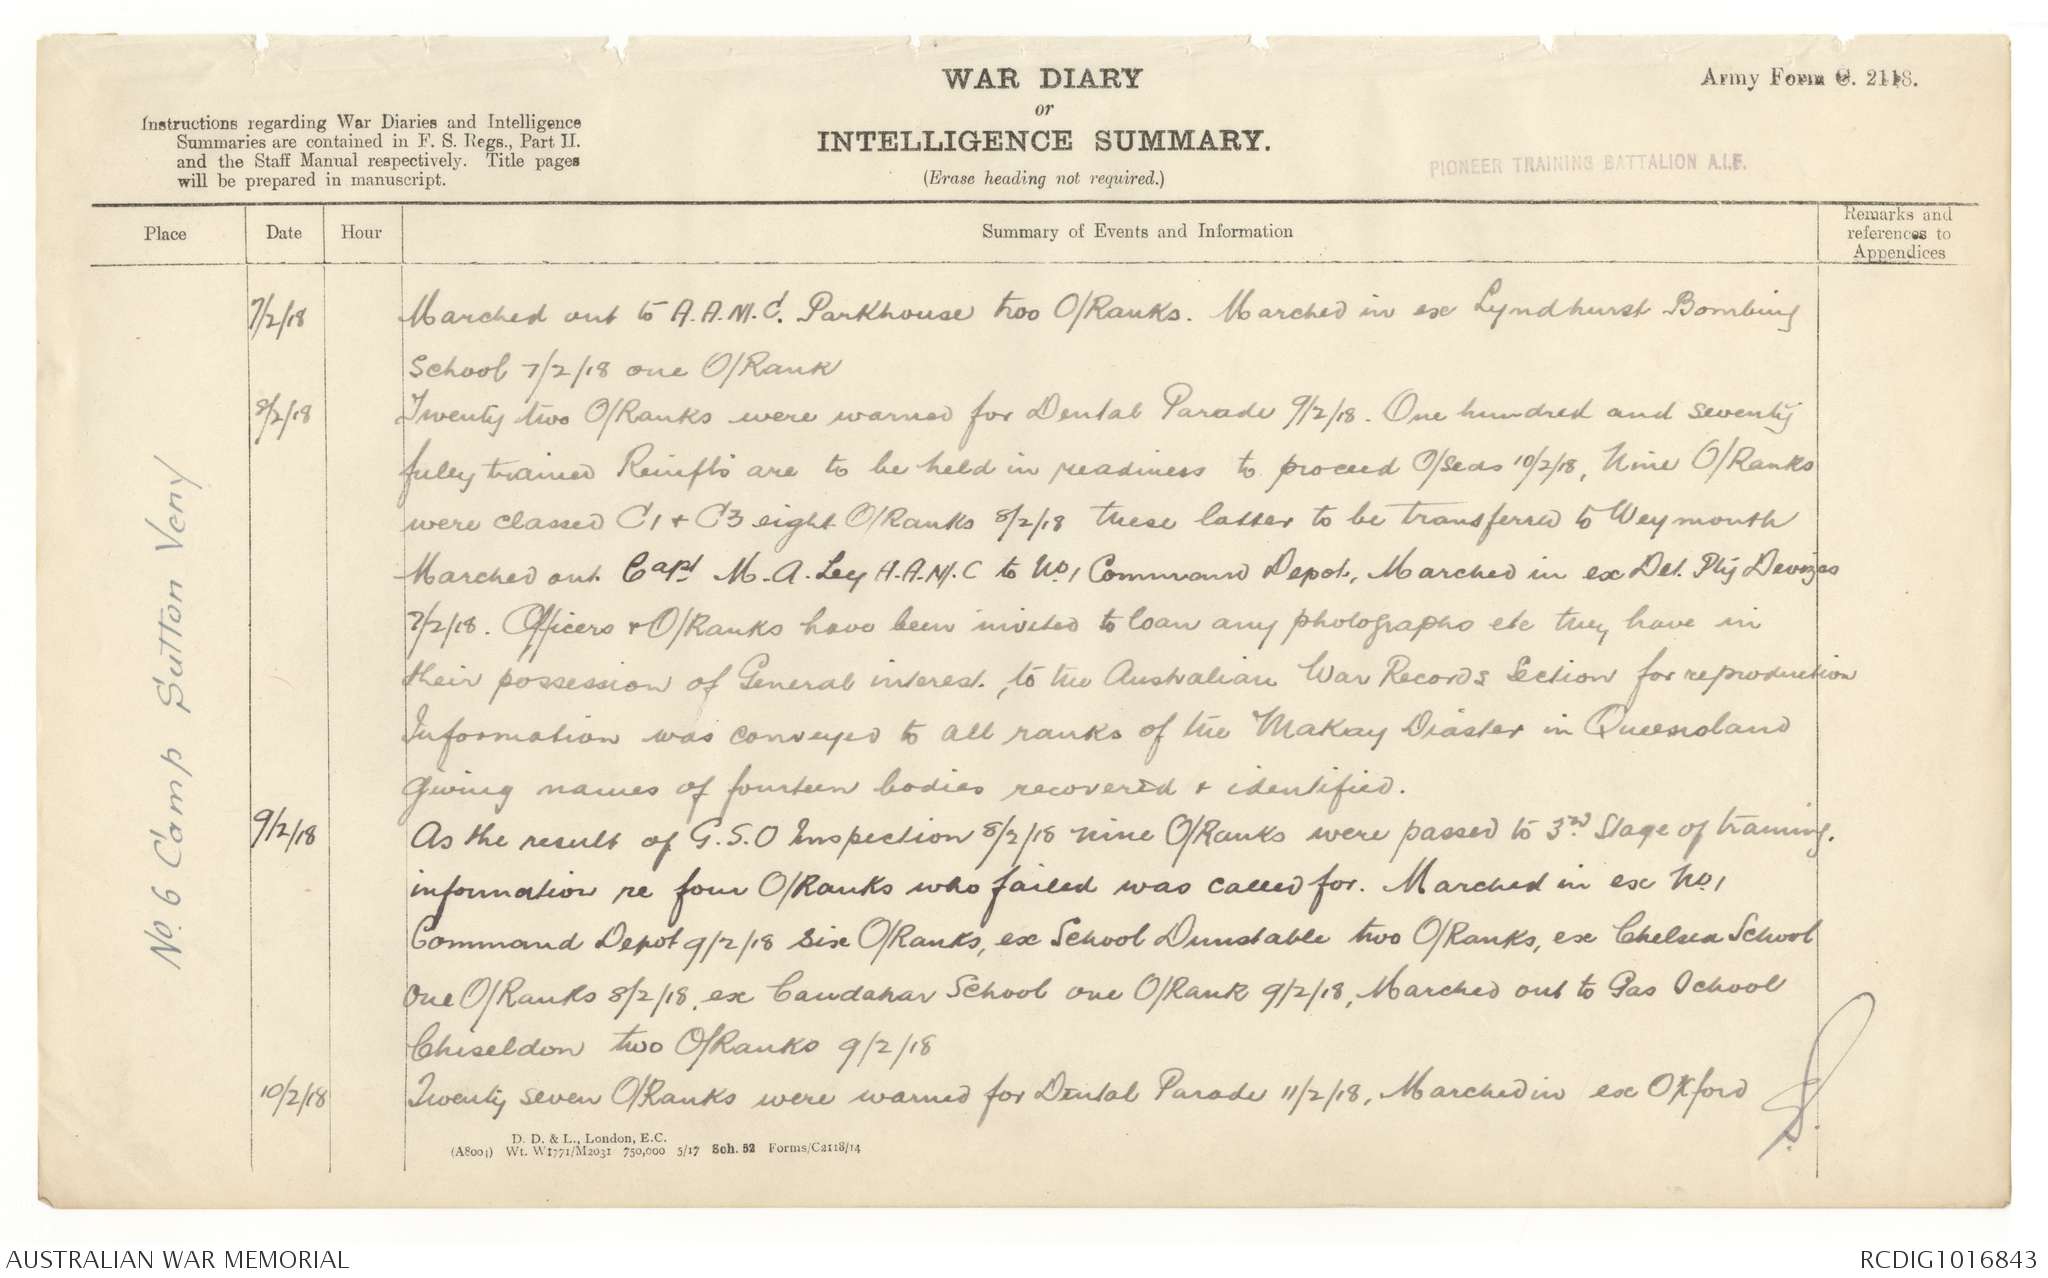 WAR DIARY
or
INTELLIGENCE SUMMARY.
(Erase heading not required.)
Army Form C. 2118.
Instructions regarding War Diaries and Intelligence
Summaries are contained in F. S. Regs., Part II.
and the Staff Manual respectively. Title pages
will be prepared in manuscript.
PIONEER TRAINING BATTALION A.I.F.
Place
Date
Hour
Summary of Events and Information
Remarks and
references to
Appendices
No. 6 Camp Sutton Veny
7/2/18 Marched out to A.A.M.C. Parkhouse two O/Ranks. Marched in ex Lyndhurst Bombing
School 7/2/18 one O/Rank
8/2/18 Twenty two O/Ranks were warned for Dental Parade 9/2/18. One hundred and seventy
fully trained Reinfts are to be held in readiness to proceed O/Seas 10/2/18, Nine O/Ranks
were classed C1 + C3 eight O/Ranks 8/2/18 these latter to be transferred to Weymouth
Marched out Capt M. A. Ley A.A.M.C to No 1 Command Depot, Marched in ex Det. Ptij Devizes
7/2/18. Officers + O/Ranks have been invited to loan any photographs etc they have in
their possession of General interest, to the Australian War Records Section for reproduction
Information was conveyed to all ranks of the Makay Diaster in Queensland
giving names of fourteen bodies recovered + identified.
9/2/18 As the result of G.S.O Inspection 8/2/18 nine O/Ranks were passed to 3rd Stage of training.
information re four O/Ranks who failed was called for. Marched in ex No 1
Command Depot 9/2/18 six O/Ranks, ex School Dunstable two O/Ranks, ex Chelsea School
one O/Ranks 8/2/18, ex Candahar School one O/Rank 9/2/18, Marched out to Gas School
Chiseldon two O/Ranks 9/2/18
10/2/18 Twenty seven O/Ranks were warned for Dental Parade 11/2/18, Marched in ex Oxford
D. D. & L., London, E.C.
(A8004) Wt. W1771/M2031 750,000 5/17 Sch. 52 Forms/C2118/14
AUSTRALIAN WAR MEMORIAL
RCDIG1016843